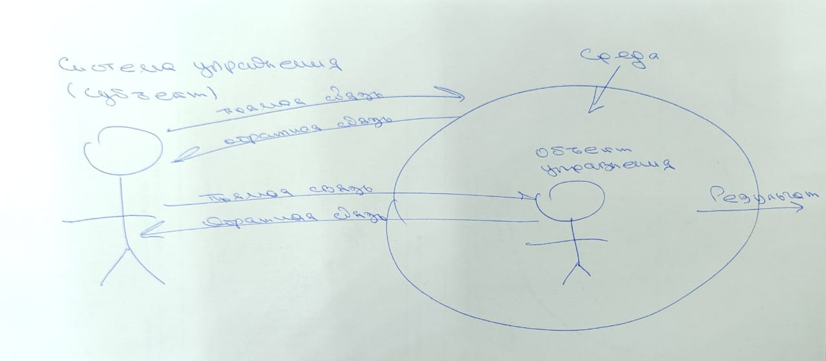 Система управления
(субъект)
прямая связь
обратная связь
прямая связь
обратная связь
Среда
объект
управления
Результат